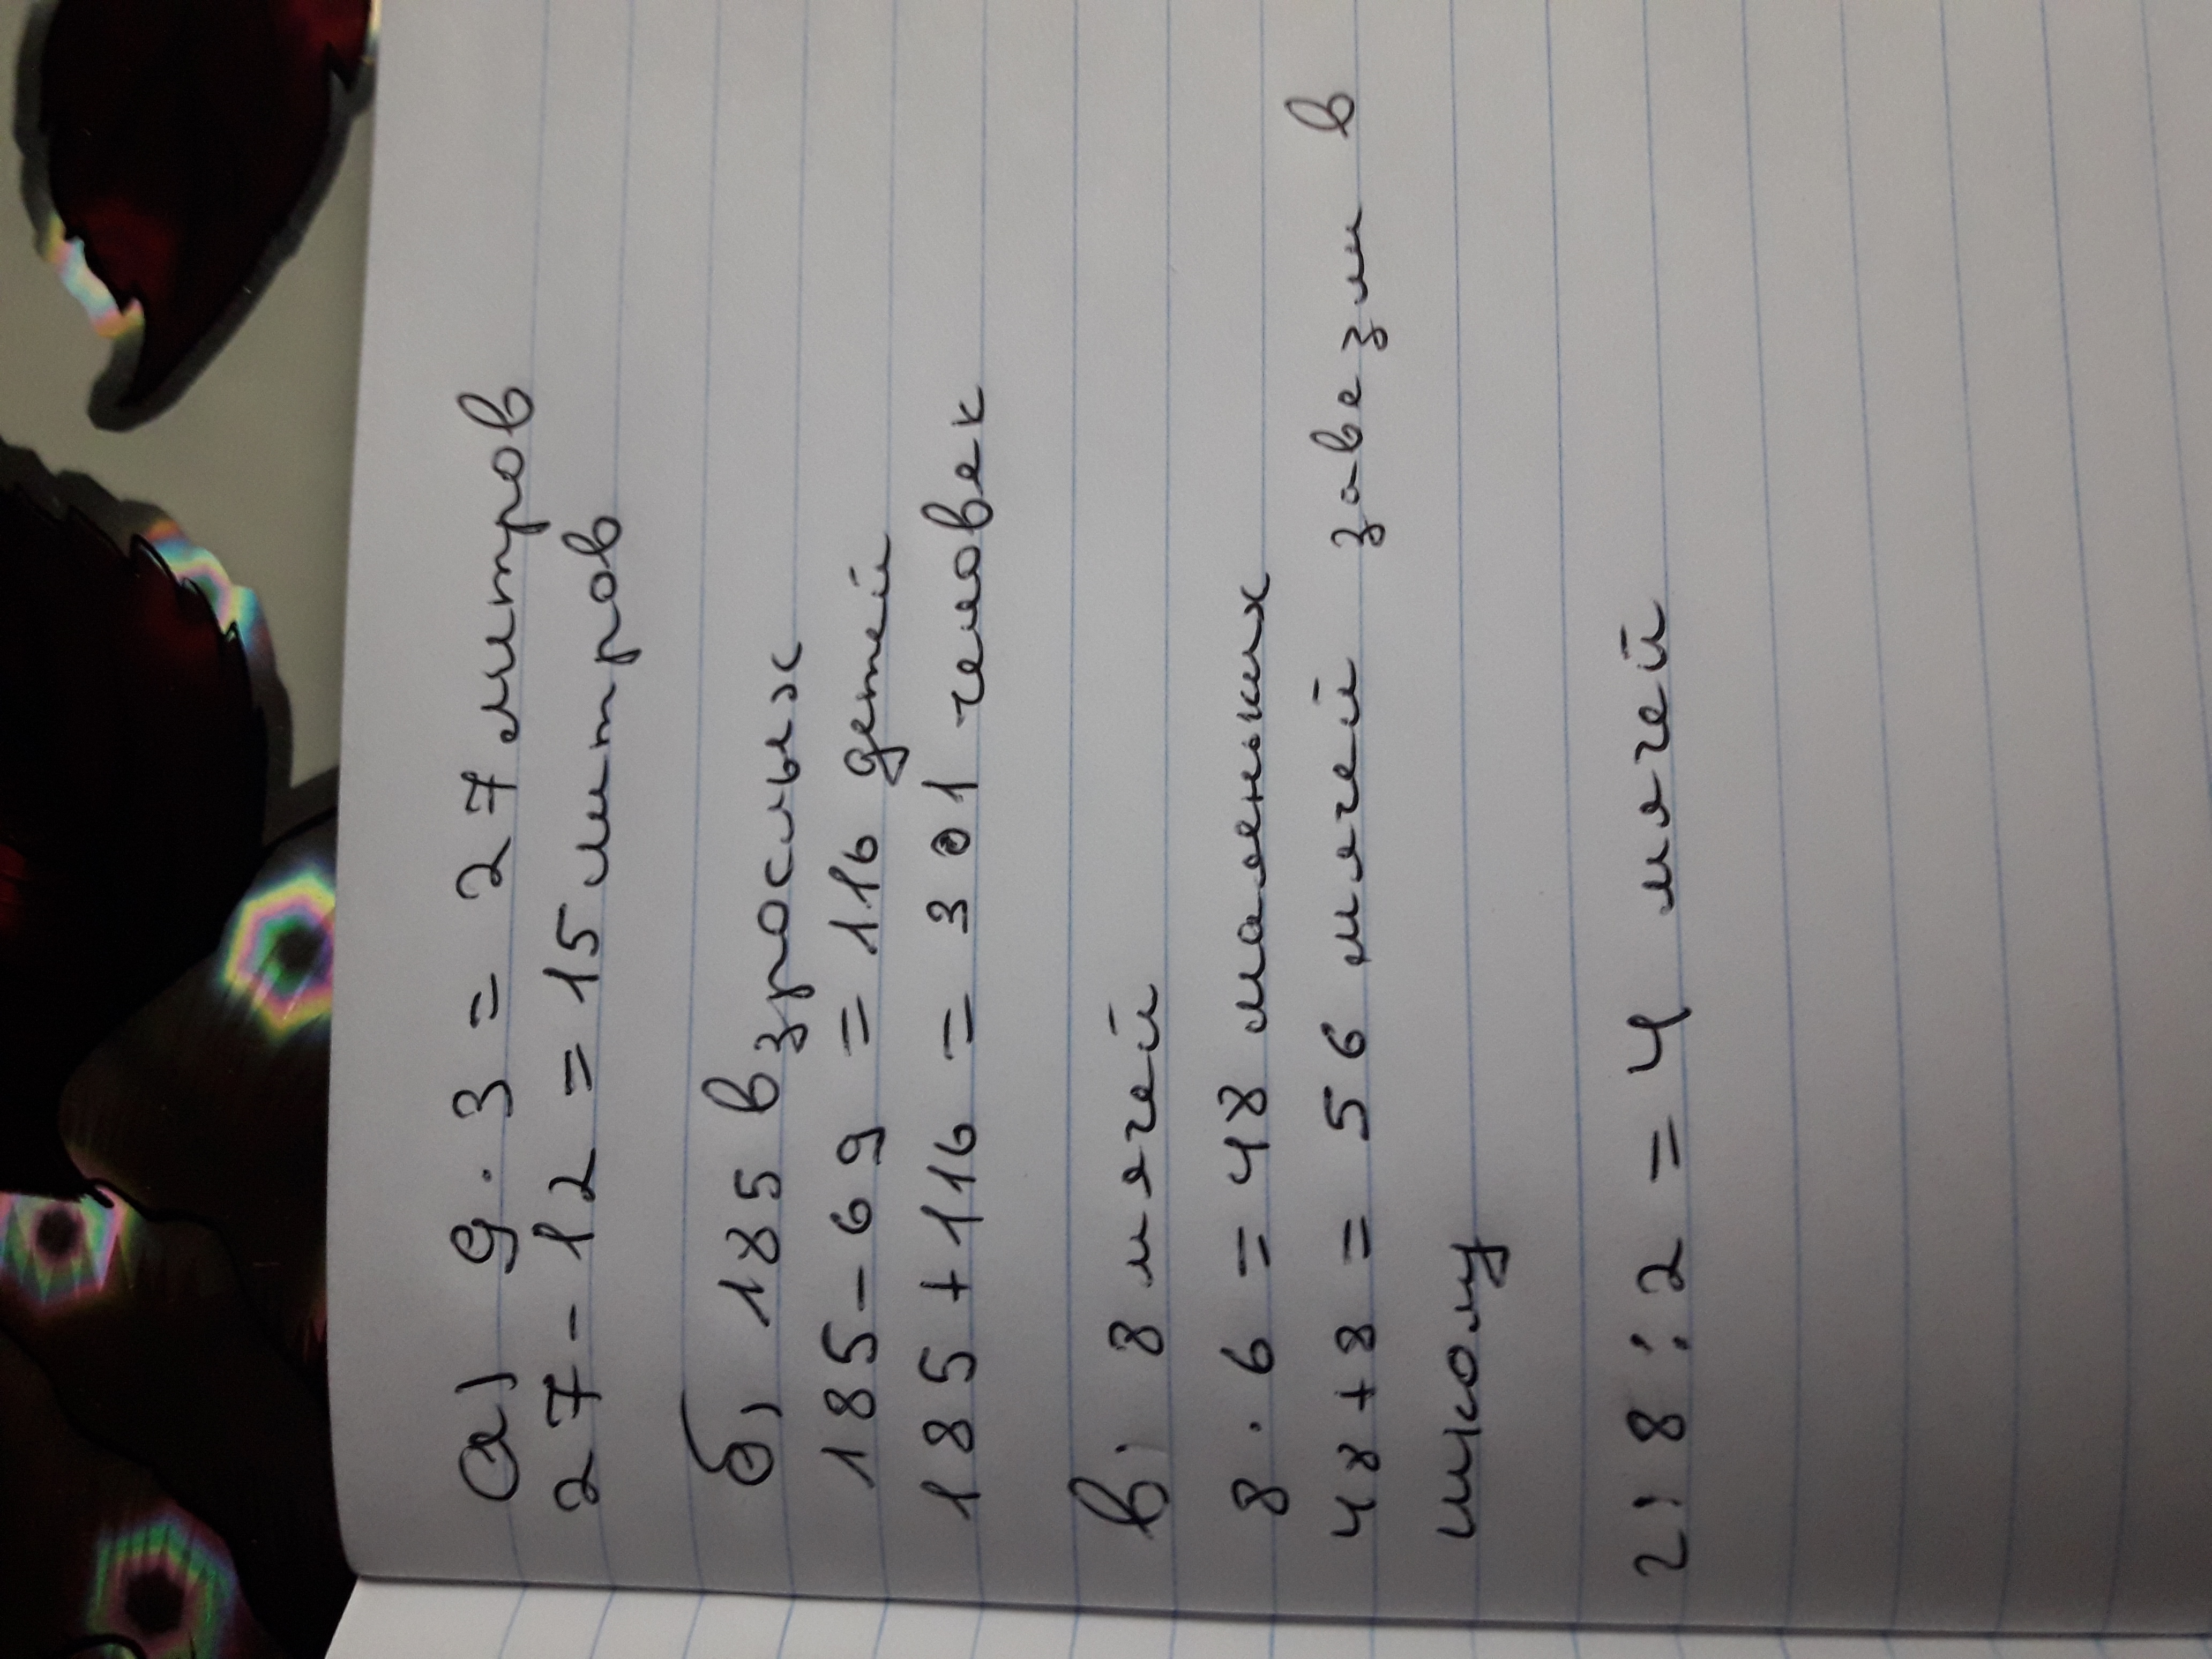 а) 9 · 3 = 27 литров
27 - 12 = 15 литров
б) 185 взрослых
185 - 69 = 116 детей
185 + 116 = 301 человек
в. 8 мячей
8 · 6 = 48 маленьких
48 + 8 = 56 мячей завезли в
школу
г) 8 : 2 = 4 мячей